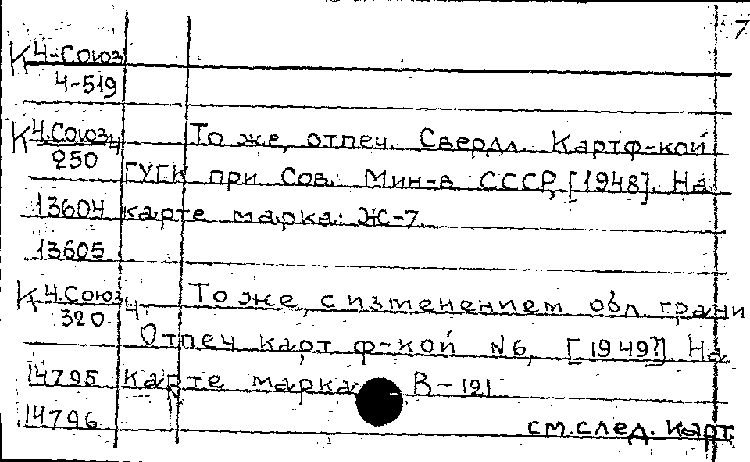 7
К 4-Союз
4-519
К 4.Союз 4 То же, отпеч. Свердл. Картф-кой
250 ГУГК при Сов. Мин-в СССР, [1948]. На
13604 карте марка: Ж-7.
13605
К 4.Союз 4 То же, с изменением обл. грани
320 Отпеч карт ф-кой №6, [1949?] На
14795 карте марка В-121
14796 см.след. карт.